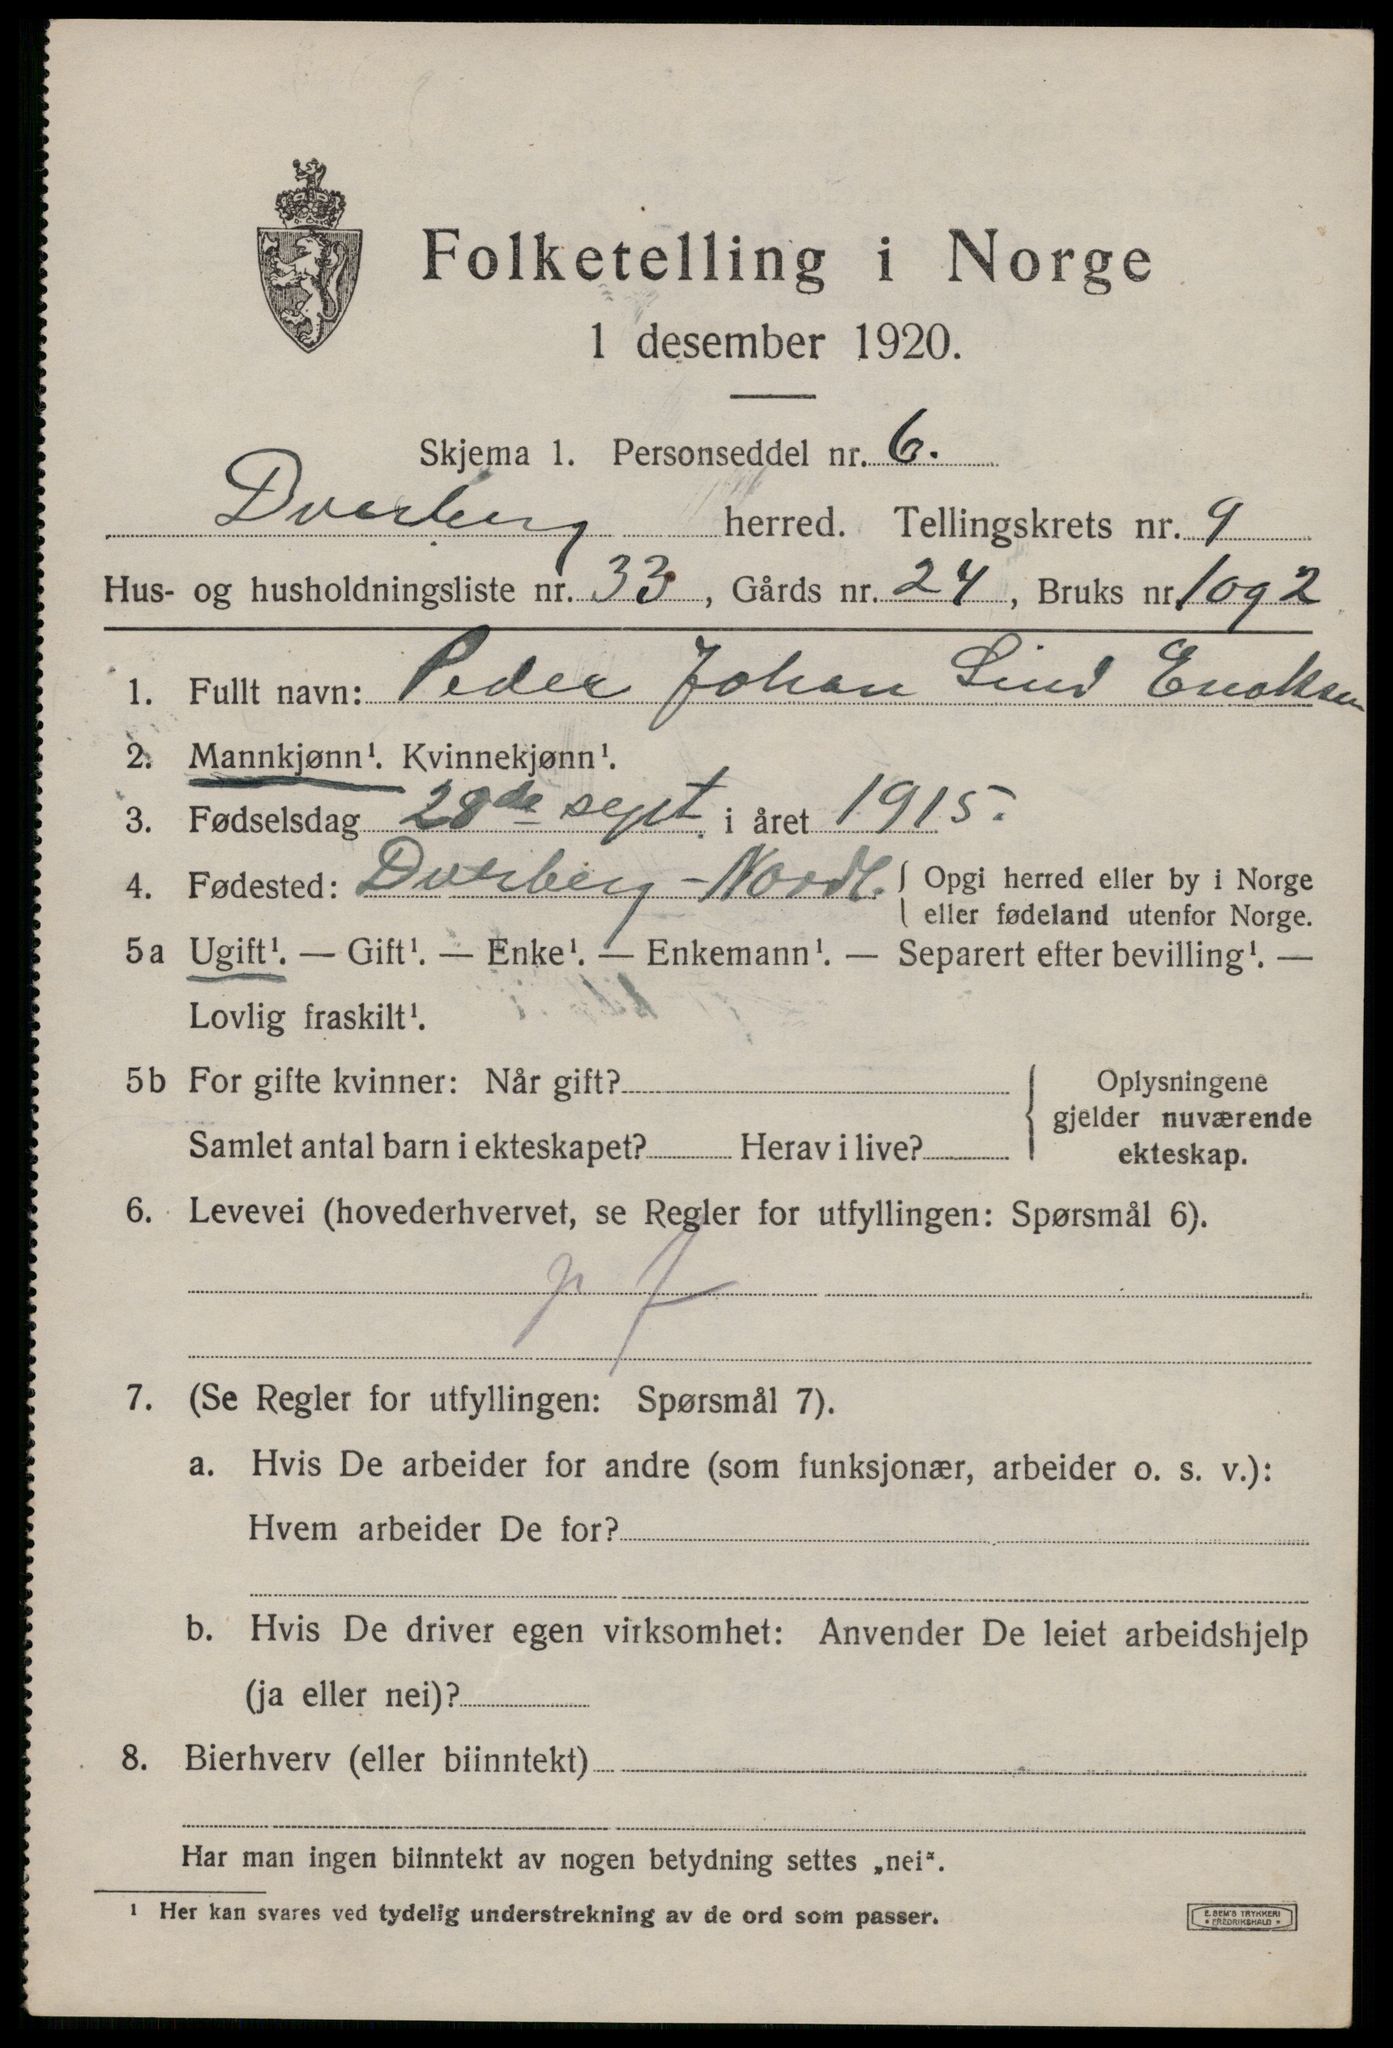 Folketelling i Norge
1 desember 1920.
Skjema 1. Personseddel nr. 6.
Dverberg herred. Tellingskrets nr. 9
Hus- og husholdningsliste nr. 33, Gårds nr. 24, Bruks nr. 1 og 2
1. Fullt navn: Peder Johan Lind Enoksen
2. Mannkjønn¹. Kvinnekjønn¹.
3. Fødselsdag 28de sept. i året 1915.
4. Fødested: Dverberg - Nordl. Opgi herred eller by i Norge
eller fødeland utenfor Norge.
5a Ugift¹. — Gift¹. — Enke¹. — Enkemann¹. — Separert efter bevilling¹. —
Lovlig fraskilt¹.
5b For gifte kvinner: Når gift?
Samlet antal barn i ekteskapet? Herav i live?
Oplysningene
gjelder nuværende
ekteskap.
6. Levevei (hovederhvervet, se Regler for utfyllingen: Spørsmål 6).
7. (Se Regler for utfyllingen: Spørsmål 7).
a. Hvis De arbeider for andre (som funksjonær, arbeider o. s. v.):
Hvem arbeider De for?
b. Hvis De driver egen virksomhet: Anvender De leiet arbeidshjelp
(ja eller nei)?
8. Bierhverv (eller biinntekt)
Har man ingen biinntekt av nogen betydning settes „nei".
¹ Her kan svares ved tydelig understrekning av de ord som passer.
E. SEM'S TRYKKERI
FREDRIKSHALD